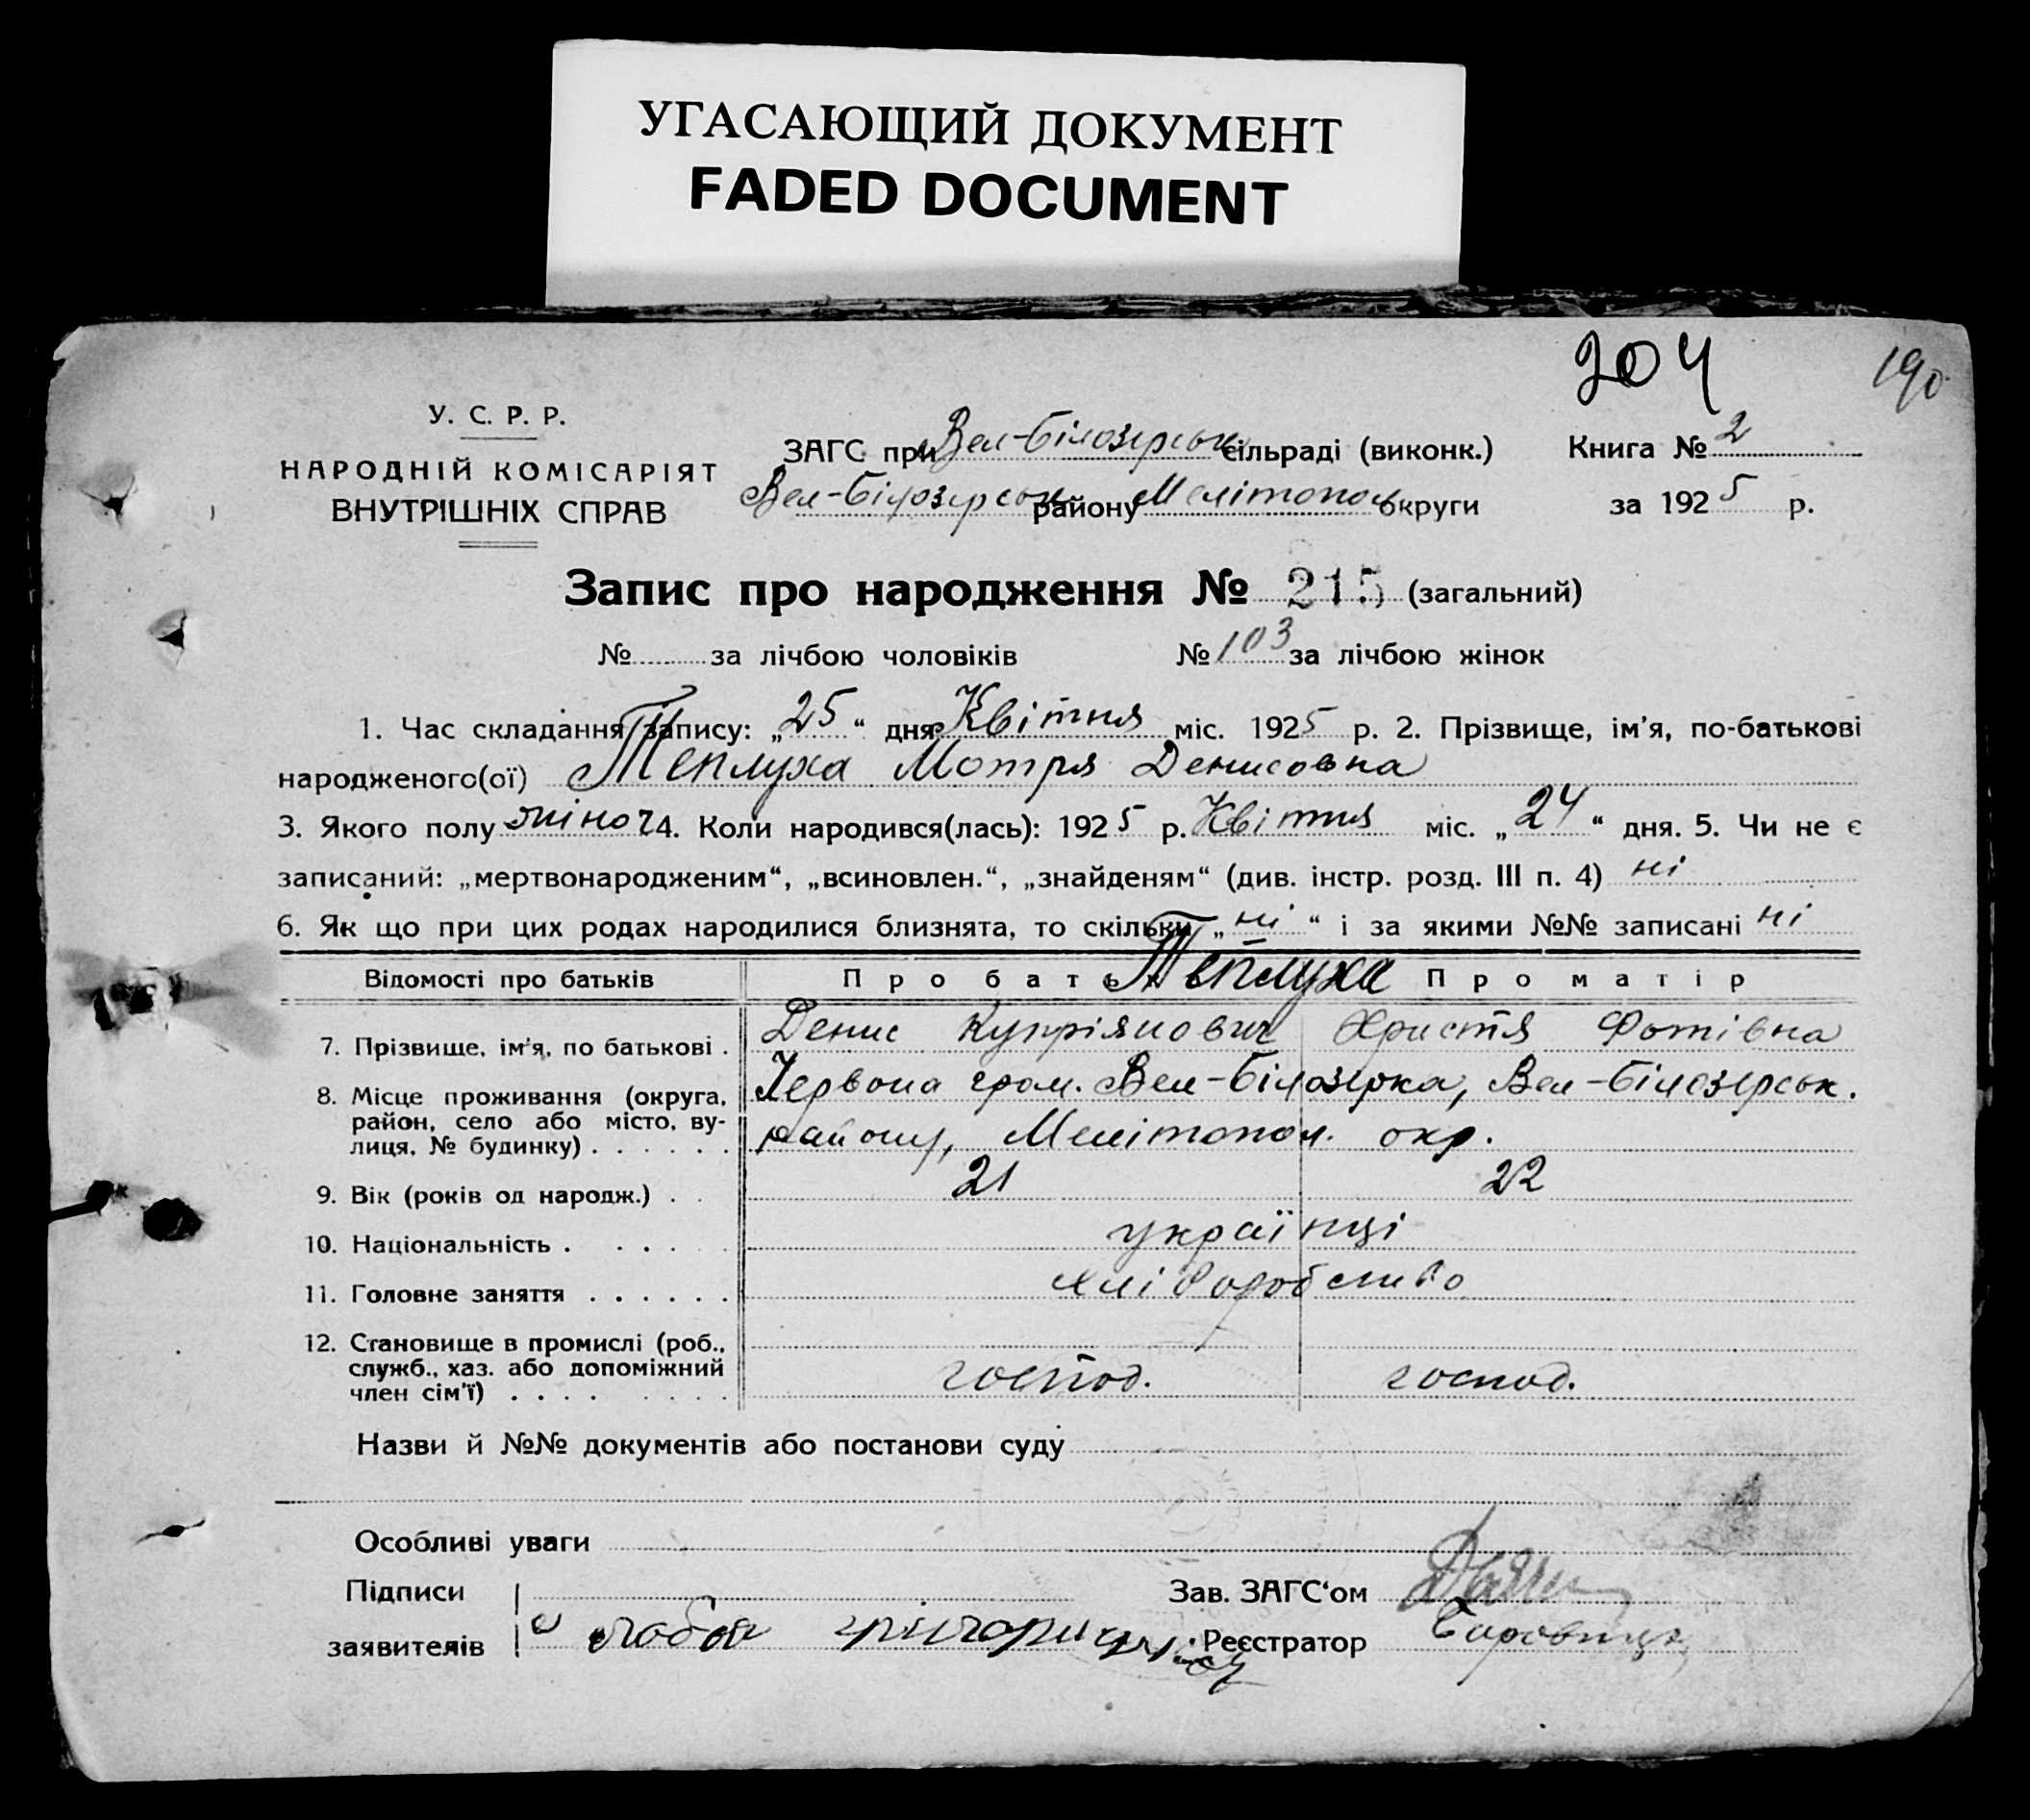 УГАСАЮЩИЙ ДОКУМЕНТ
FADED DOCUMENT
204 190
У. С. Р. Р.
НАРОДНІЙ КОМІСАРІЯТ
ВНУТРІШНІХ СПРАВ
ЗАГС при Вел-Білозерськ сільраді (виконк.) Книга № 2
Вел-Білозерськ району Мелітополь округи за 1925 р.
Запис про народження № 215 (загальний)
№ за лічбою чоловіків № 103 за лічбою жінок
1. Час складання запису: „25“ дня Квітня міс. 1925 р. 2. Прізвище, ім'я, по-батькові
народженого(ої) Теплуха Мотря Денисовна
3. Якого полу жіноч 4. Коли народився(лась): 1925 р. Квітня міс. „24“ дня. 5. Чи не є
записаний: „мертвонародженим“, „всиновлен.“, „знайденям“ (див. інстр. розд. III п. 4) ні
6. Як що при цих родах народилися близнята, то скільки „ні“ і за якими №№ записані ні
Відомості про батьків Про бать Теплуха Про матір
7. Прізвище, ім'я, по батькові . Денис Купріянович Христя Фотівна
8. Місце проживання (округа, Червона гром. Вел-Білозерка, Вел-Білозерськ.
район, село або місто, ву-
лиця, № будинку) . . . . . . району, Мелітопол. окр.
9. Вік (років од народж.) . . 21 22
10. Національність . . . . . українці
11. Головне заняття . . . . . . хліборобство
12. Становище в промислі (роб.,
служб., хаз. або допоміжний
член сім'ї) . . . . . . . . господ. господ.
Назви й №№ документів або постанови суду
Особливі уваги
Підписи Зав. ЗАГС'ом
заявителів Реєстратор